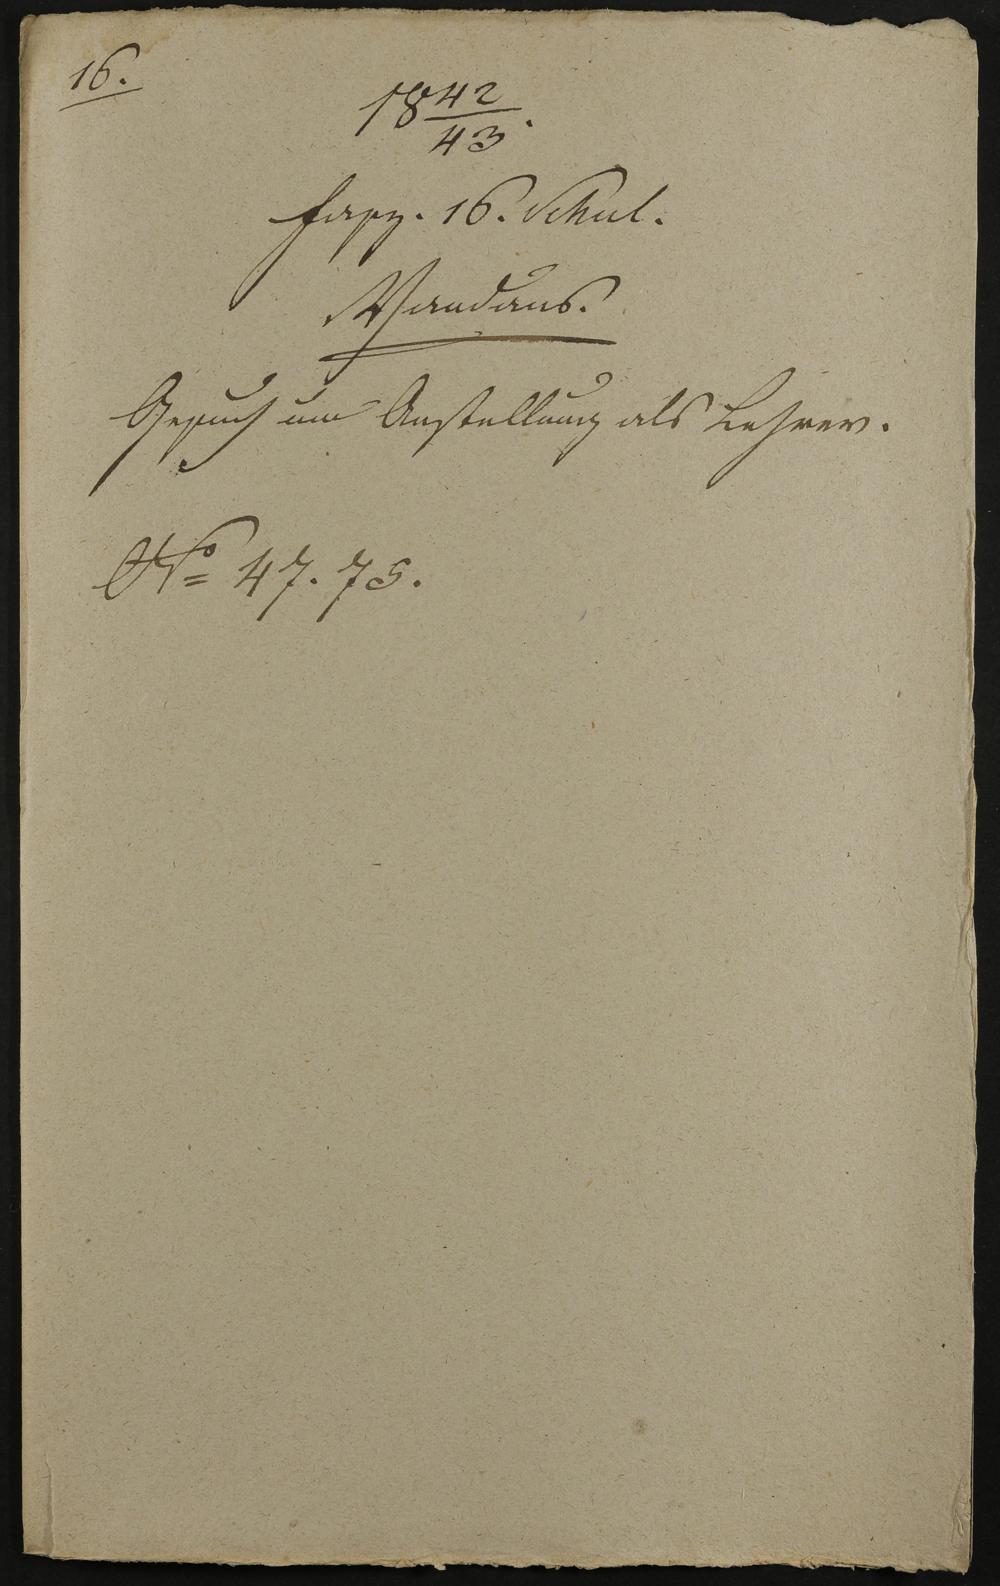 16.
18 42/43.
Fasz. 16. Schul.
Vandans.
Gesuch um Anstellung als Lehrer.
No 47. 75.